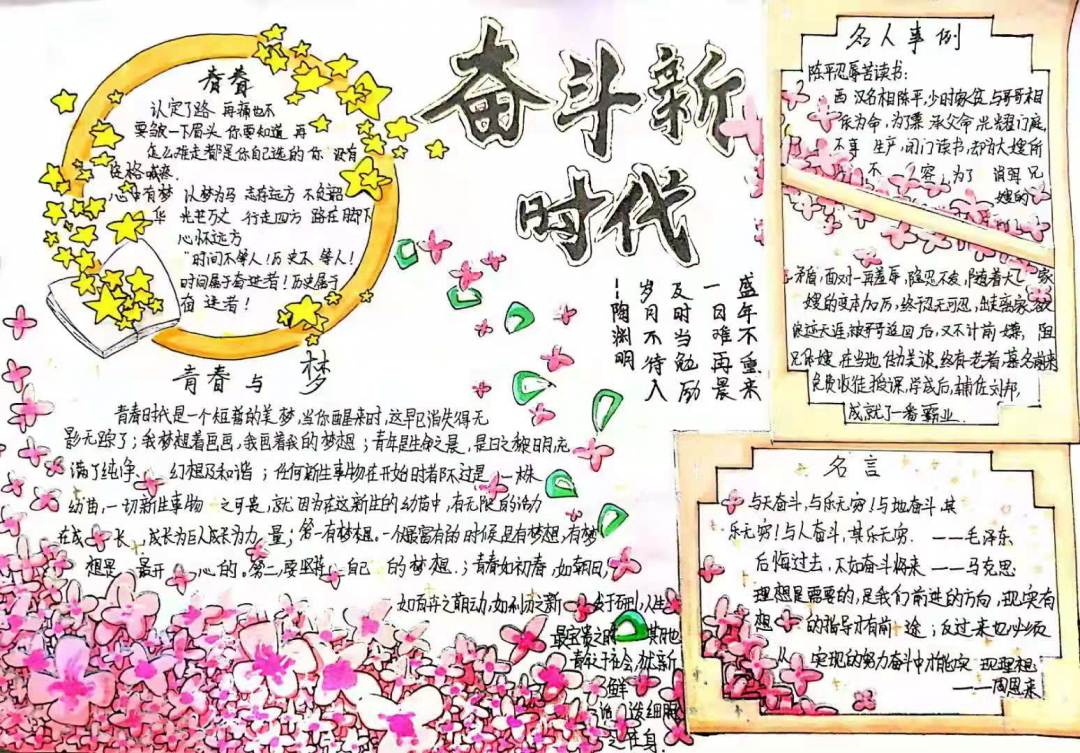 奋斗新
时代
青春
认定了路 再痛也不
要皱一下眉头 你要知道 再
怎么难走都是你自己选的 你 没有
资格喊疼
心中有梦 以梦为马 志存远方 不负韶
华 光芒万丈 行走四方 路在脚下
心怀远方
"时间不等人!历史不 等人!
时间属于奋进者!历史属于
奋 进者!
盛年不重来
一日难再晨
及时当勉励
岁月不待人
--陶渊明
青春与 梦
青春时代是一个短暂的美梦,当你醒来时,这早已消失得无
影无踪了;我梦想着画画,我画着我的梦想;青年是生命之晨,是日之黎明,充
满了纯净 幻想及和谐;任何新生事物在开始时都不过是 一株
幼苗,一切新生事物 之可贵,就 因为在这新生的幼苗中,有无限的活力
在成 长 成长为巨人成长为力 量;第一有梦想。一个最富有的时候是有梦想,有梦
想是 最开 心的。第二,要坚持 自己 的梦想.;青春如初春,如朝日,
如百卉之萌动,如利刃之新 发于硎,人生
最宝贵之时 其也
青年于社会,犹新
鲜
活 泼细胞
之在身.
名人事例
陈平忍辱苦读书:
西 汉名相陈平,少时家贫,与哥哥相
依为命,为了秉 承父命,光耀门庭,
不事 生产,闭门读书,却为大嫂所
不 容,为了 消弭 兄
嫂的
矛盾,面对一再羞辱,隐忍不发,随着大 家
嫂的变本加厉,终于忍无可忍,出走离家,欲
浪迹天涯,被哥哥追回后,又不计前嫌, 阻
兄休嫂,在当地传为美谈.终有一老者,慕名前来
免费收徒授课,学成后,辅佐刘邦,
成就了一番霸业.
名言
与天奋斗,与乐无穷!与地奋斗,其
乐无穷!与人奋斗,其乐无穷. ——毛泽东
后悔过去,不如奋斗将来 ——马克思
理想是需要的,是我们前进的方向,现实有
想 的指导才有前 途;反过来也必须
从 实现的努力奋斗中才能实 现理想.
——周恩来